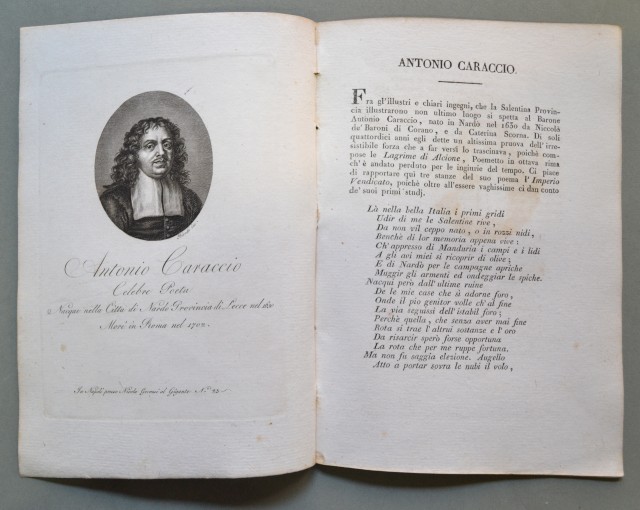 Antonio Caraccio
Celebre Poeta
Nacque nella Città di Nardò Provincia di Lecce nel
Morì in Roma nel 1702.
In Napoli presso Nicola Gervasi al Gigante N.º 23
ANTONIO CARACCIO.
Fra gl'illustri e chiari ingegni, che la Salentina Provin-
cia illustrarono non ultimo luogo si spetta al Barone
Antonio Caraccio, nato in Nardò nel 1630 da Niccolà
de' Baroni di Corano, e da Caterina Scorna. Di soli
quattordici anni egli dette un altissima pruova dell'irre-
sistibile forza che a far versi lo trascinava, poichè com-
pose le Lagrime di Alcione, Poemetto in ottava rima
ch'è andato perduto per le ingiurie del tempo. Ci piace
di rapportare qui tre stanze del suo poema l'Imperio
Vendicato, poichè oltre all'essere vaghissime ci dan conto
de' suoi primi studj.
Là nella bella Italia i primi gridi
Udir di me le Salentine rive,
Da non vil ceppo nato, o in rozzi nidi,
Benchè di lor memoria appena vive;
Ch'appresso di Manduria i campi e i lidi
A gli avi miei si ricoprir di olive;
E di Nardò per le campagne apriche
Muggir gli armenti ed ondeggiar le spiche.
Nacqui però dall'ultime ruine
De le mie case che si adorne foro,
Onde il pio genitor volle ch'al fine
La via seguissi dell'istabil foro;
Perchè quella, che senza aver mai fine
Rota si trae l'altrui sostanze e l'oro
Da risarcir sperò forse opportuna
La rota che per me ruppe fortuna.
Ma non fu saggia elezione. Augello
Atto a portar sovra le nubi il volo,